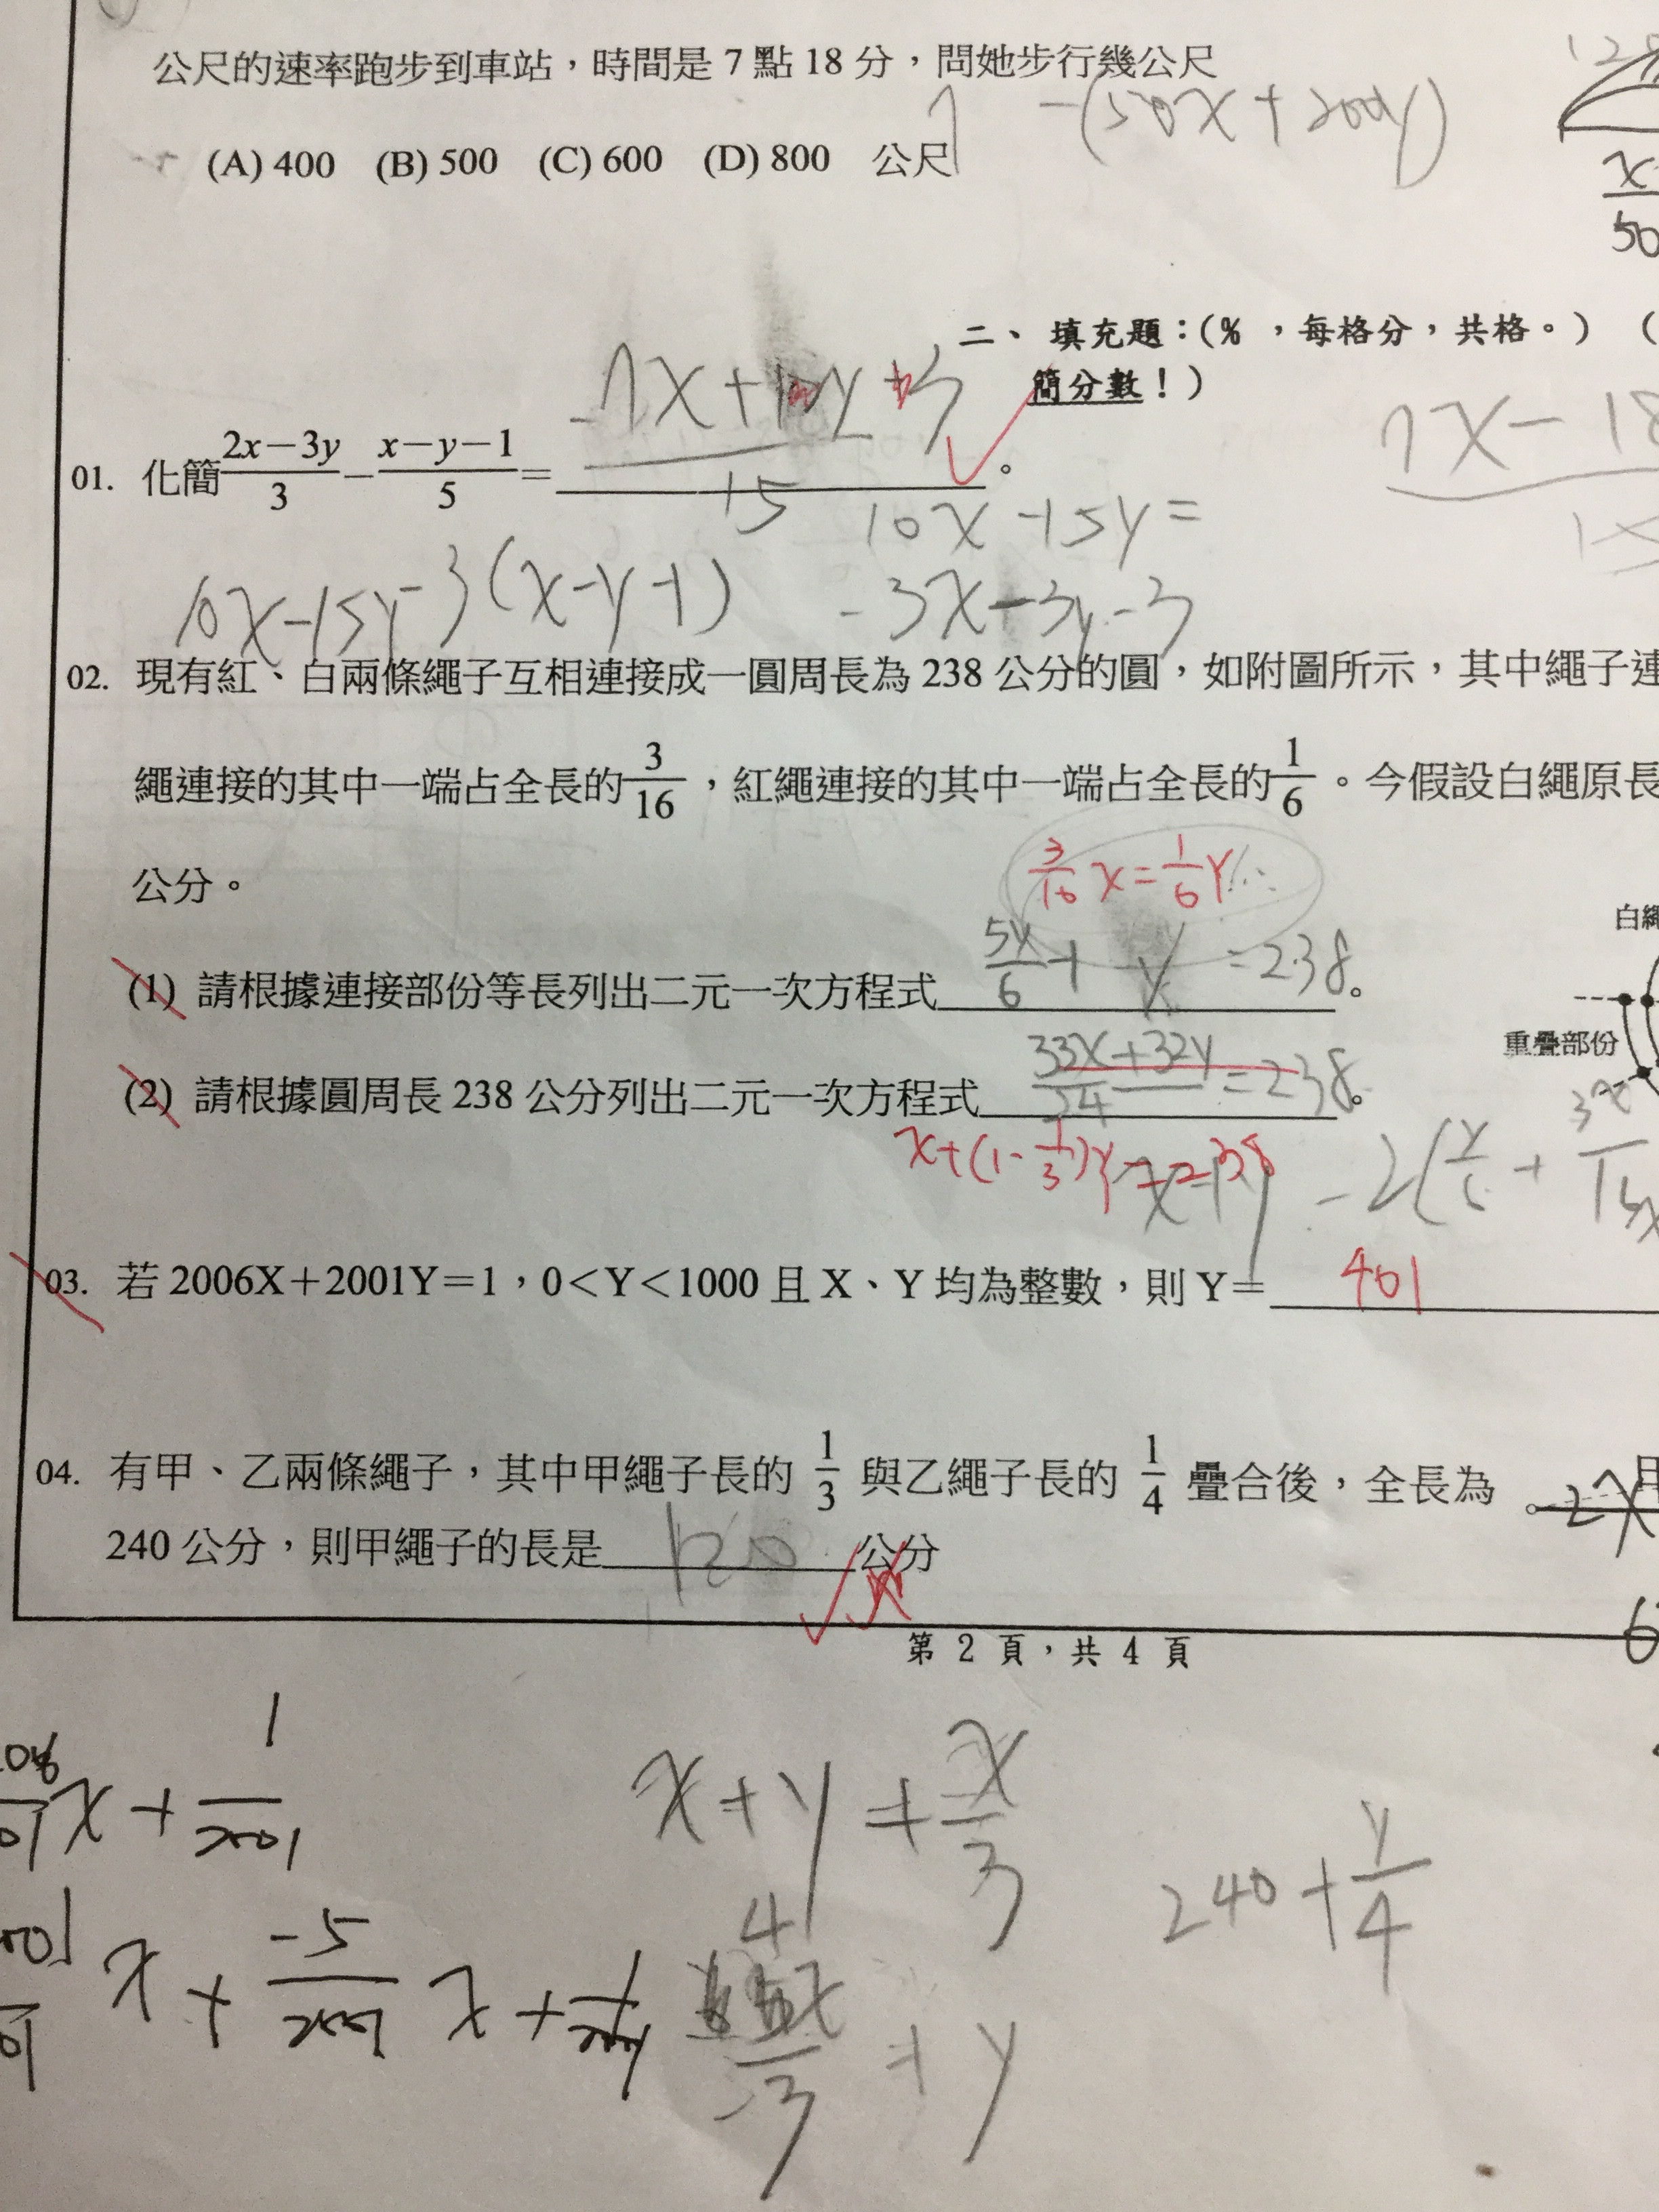 公尺的速率跑步到車站，時間是 7 點 18 分，問她步行幾公尺
-(50x+200y)
(A) 400 (B) 500 (C) 600 (D) 800 公尺
50
二、 填充題：(% ，每格分，共格。) (
簡分數！)
7x-18
01. 化簡\frac{2x-3y}{3}-\frac{x-y-1}{5}=。
15
10x-15y=
10x-15y-3(x-y-1)
-3x+3y-3
02. 現有紅、白兩條繩子互相連接成一圓周長為 238 公分的圓，如附圖所示，其中繩子連
繩連接的其中一端占全長的\frac{3}{16}，紅繩連接的其中一端占全長的\frac{1}{6}。今假設白繩原長
公分。
\frac{3}{16}x=\frac{1}{6}y
白繩
(1) 請根據連接部份等長列出二元一次方程式 =238。
重疊部份
(2) 請根據圓周長 238 公分列出二元一次方程式\frac{33x+32y}{24}=238。
x+(1-\frac{1}{3})y=238
03. 若 2006X＋2001Y＝1，0＜Y＜1000 且 X、Y 均為整數，則 Y＝401
04. 有甲、乙兩條繩子，其中甲繩子長的 \frac{1}{3} 與乙繩子長的 \frac{1}{4} 疊合後，全長為
240 公分，則甲繩子的長是120公分
第 2 頁，共 4 頁
x+y+\frac{x}{3}
240+\frac{y}{4}
x+\frac{1}{2001}
x+\frac{-5}{2001}x+
+y